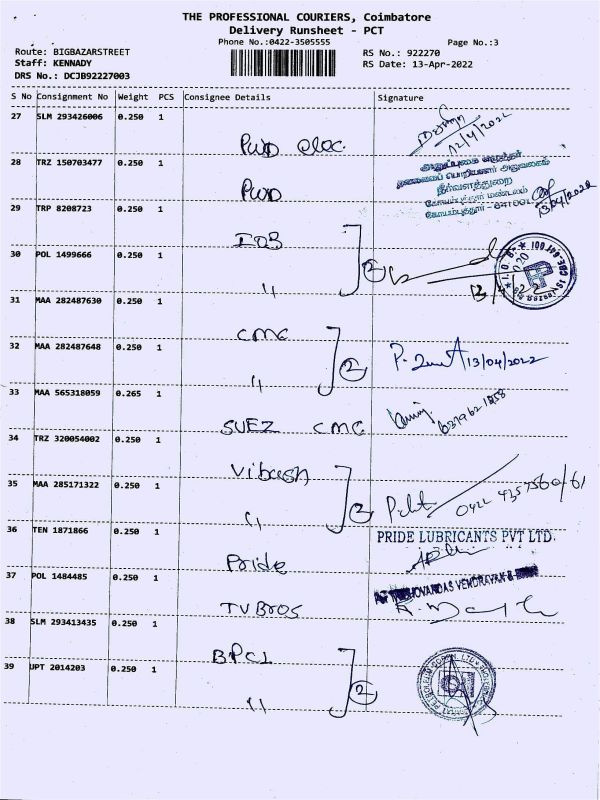 THE PROFESSIONAL COURIERS, Coimbatore
Delivery Runsheet - PCT
Phone No.:0422-3505555
Page No.:3
Route: BIGBAZARSTREET
RS No.: 922270
Staff: KENNADY
RS Date: 13-Apr-2022
DRS No.: DCJB92227003
S No Consignment No Weight PCS Consignee Details Signature
27 SLM 293426006 0.250 1
PWD elec.
12/4/2022
28 TRZ 150703477 0.250 1
PWD
தலைமைப் பொறியாளர் அலுவலகம்
நீர்வளத்துறை
கோயம்புத்தூர் மண்டலம்
கோயம்புத்தூர் - 641001
13/04/2022
29 TRP 8208723 0.250 1
IOB
30 POL 1499666 0.250 1
"
2
31 MAA 282487630 0.250 1
CMC
32 MAA 282487648 0.250 1
"
2
13/04/2022
33 MAA 565318059 0.265 1
SUEZ CMC
34 TRZ 320054002 0.250 1
Vibash
35 MAA 285171322 0.250 1
"
2
0422 4357560/61
36 TEN 1871866 0.250 1
Pride
PRIDE LUBRICANTS PVT LTD.
37 POL 1484485 0.250 1
TV Bros
38 SLM 293413435 0.250 1
BPCL
39 UPT 2014203 0.250 1
"
2